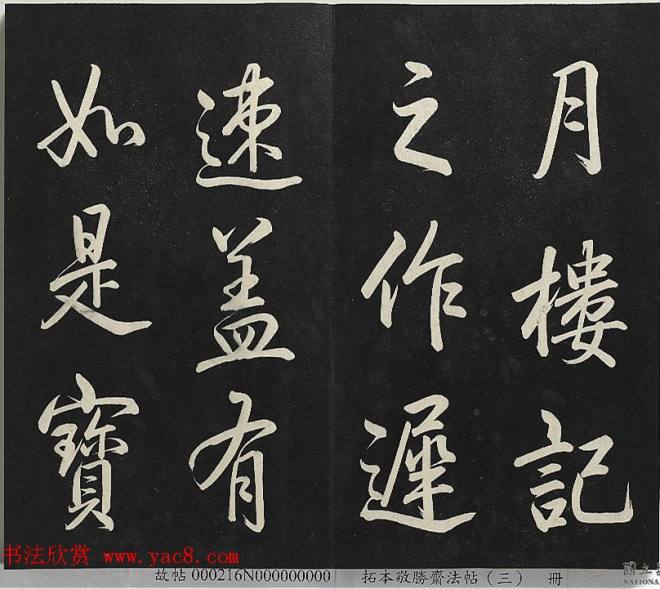 月樓記
之作遲
速盖有
如是寶
书法欣赏 www.yac8.com
故帖 000216N000000000
拓本敬勝齋法帖（三） 冊
國立
NATIONAL